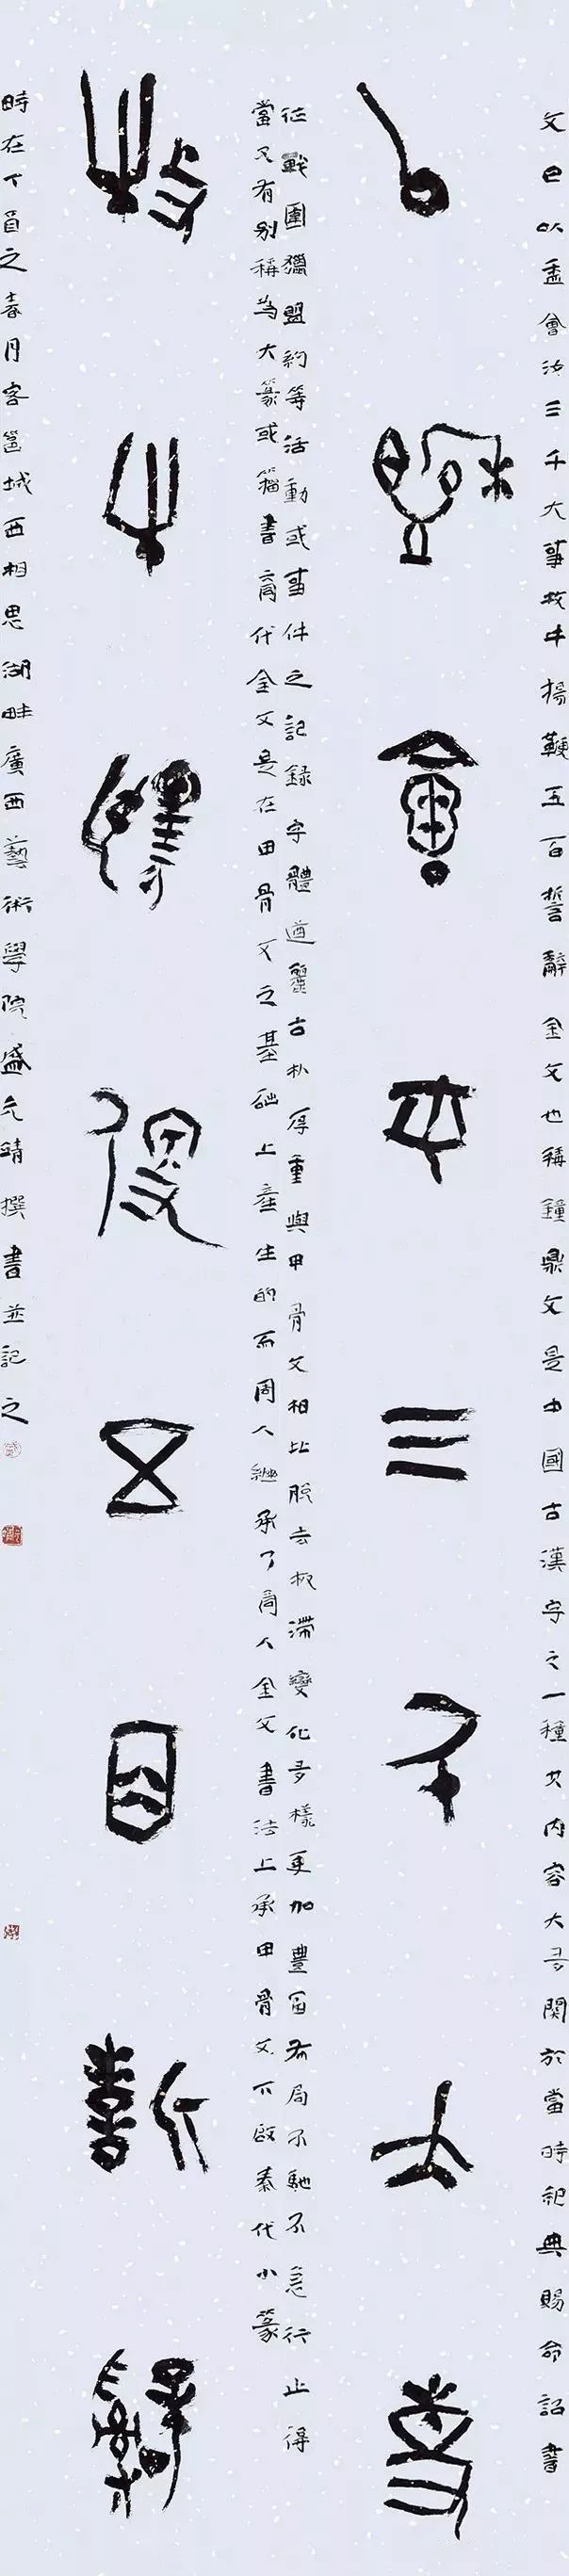 文曰以盉會三千大事牧牛揚鞭五百誓辭金文也稱鐘鼎文是中國古漢字之一種其内容大多關於當時祀典賜命詔書
以盉會三千大事
征戰圍獵盟約等活動或事件之記録字體遒麗古朴厚重與甲骨文相比脱去板滯變化多樣更加豐富布局不馳不急行止得
當又有别稱為大篆或籀書商代金文是在甲骨文之基礎上産生的而周人繼承了商人金文書法上承甲骨文下啟秦代小篆
牧牛揚鞭五百誓辭
時在丁酉之春月客邕城西相思湖畔廣西藝術學院盛允靖撰書並記之